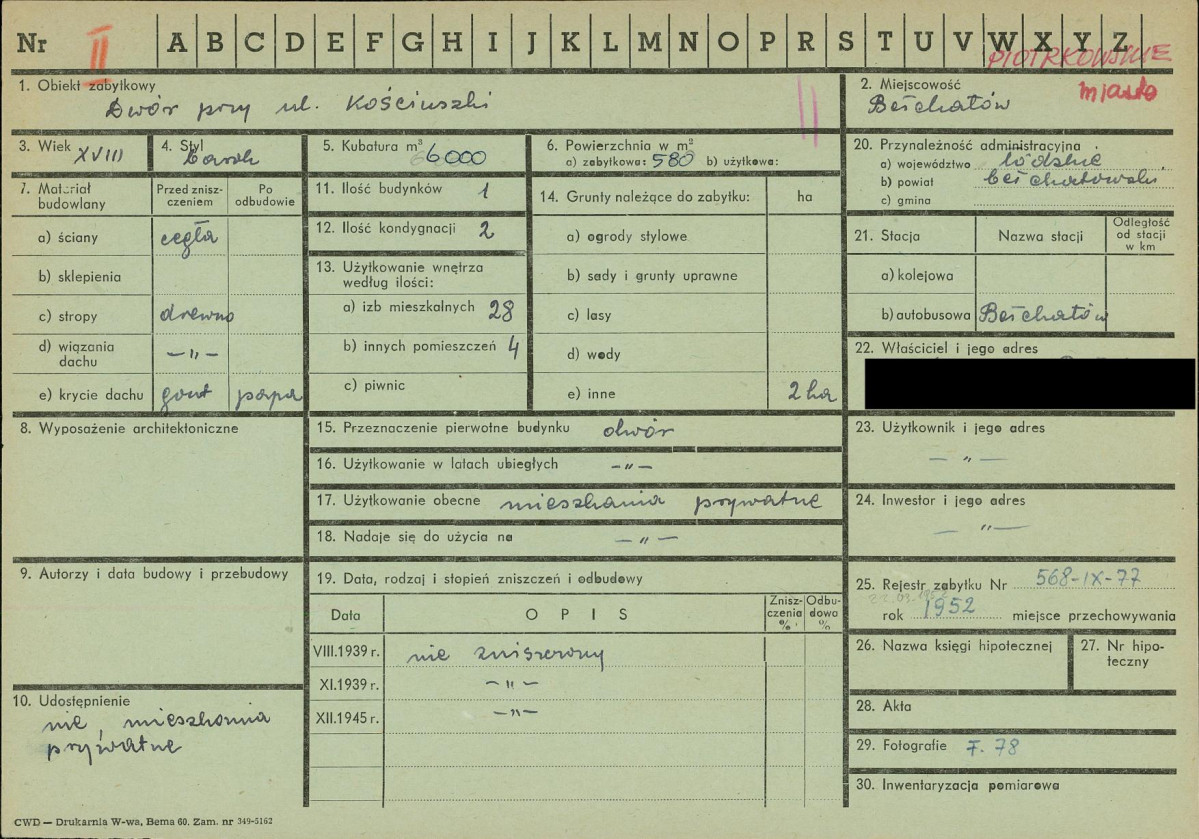 Nr II A B C D E F G H I J K L M N O P R S T U V W X Y Z
PIOTRKOWSKIE
1. Obiekt zabytkowy
Dwór przy ul. Kościuszki
2. Miejscowość miasto
Bełchatów
3. Wiek XVIII
4. Styl
barok
5. Kubatura m³ 6000
6. Powierzchnia w m²
a) zabytkowa: 580 b) użytkowa:
20. Przynależność administracyjna
a) województwo łódzkie
b) powiat bełchatowski
c) gmina
7. Materiał budowlany
Przed zniszczeniem
Po odbudowie
a) ściany cegła
b) sklepienia
c) stropy drewno
d) wiązania dachu —„—
e) krycie dachu gont papa
11. Ilość budynków 1
12. Ilość kondygnacji 2
13. Użytkowanie wnętrza
według ilości:
a) izb mieszkalnych 28
b) innych pomieszczeń 4
c) piwnic
14. Grunty należące do zabytku: ha
a) ogrody stylowe
b) sady i grunty uprawne
c) lasy
d) wody
e) inne 2 ha
21. Stacja Nazwa stacji
Odległość
od stacji
w km
a) kolejowa
b) autobusowa Bełchatów
22. Właściciel i jego adres
8. Wyposażenie architektoniczne
15. Przeznaczenie pierwotne budynku dwór
16. Użytkowanie w latach ubiegłych —„—
17. Użytkowanie obecne mieszkania prywatne
18. Nadaje się do użycia na —„—
23. Użytkownik i jego adres
—„—
24. Inwestor i jego adres
—„—
9. Autorzy i data budowy i przebudowy
19. Data, rodzaj i stopień zniszczeń i odbudowy
Data OPIS
Znisz-
czenia
%
Odbu-
dowa
%
VIII.1939 r. nie zniszczony
XI.1939 r. —„—
XII.1945 r. —„—
25. Rejestr zabytku Nr 568-IX-77
rok 1952 miejsce przechowywania
26. Nazwa księgi hipotecznej
27. Nr hipo-
teczny
10. Udostępnienie
nie, mieszkania
prywatne
28. Akta
29. Fotografie F. 78
30. Inwentaryzacja pomiarowa
CWD — Drukarnia W-wa, Bema 60. Zam. nr 349-5162